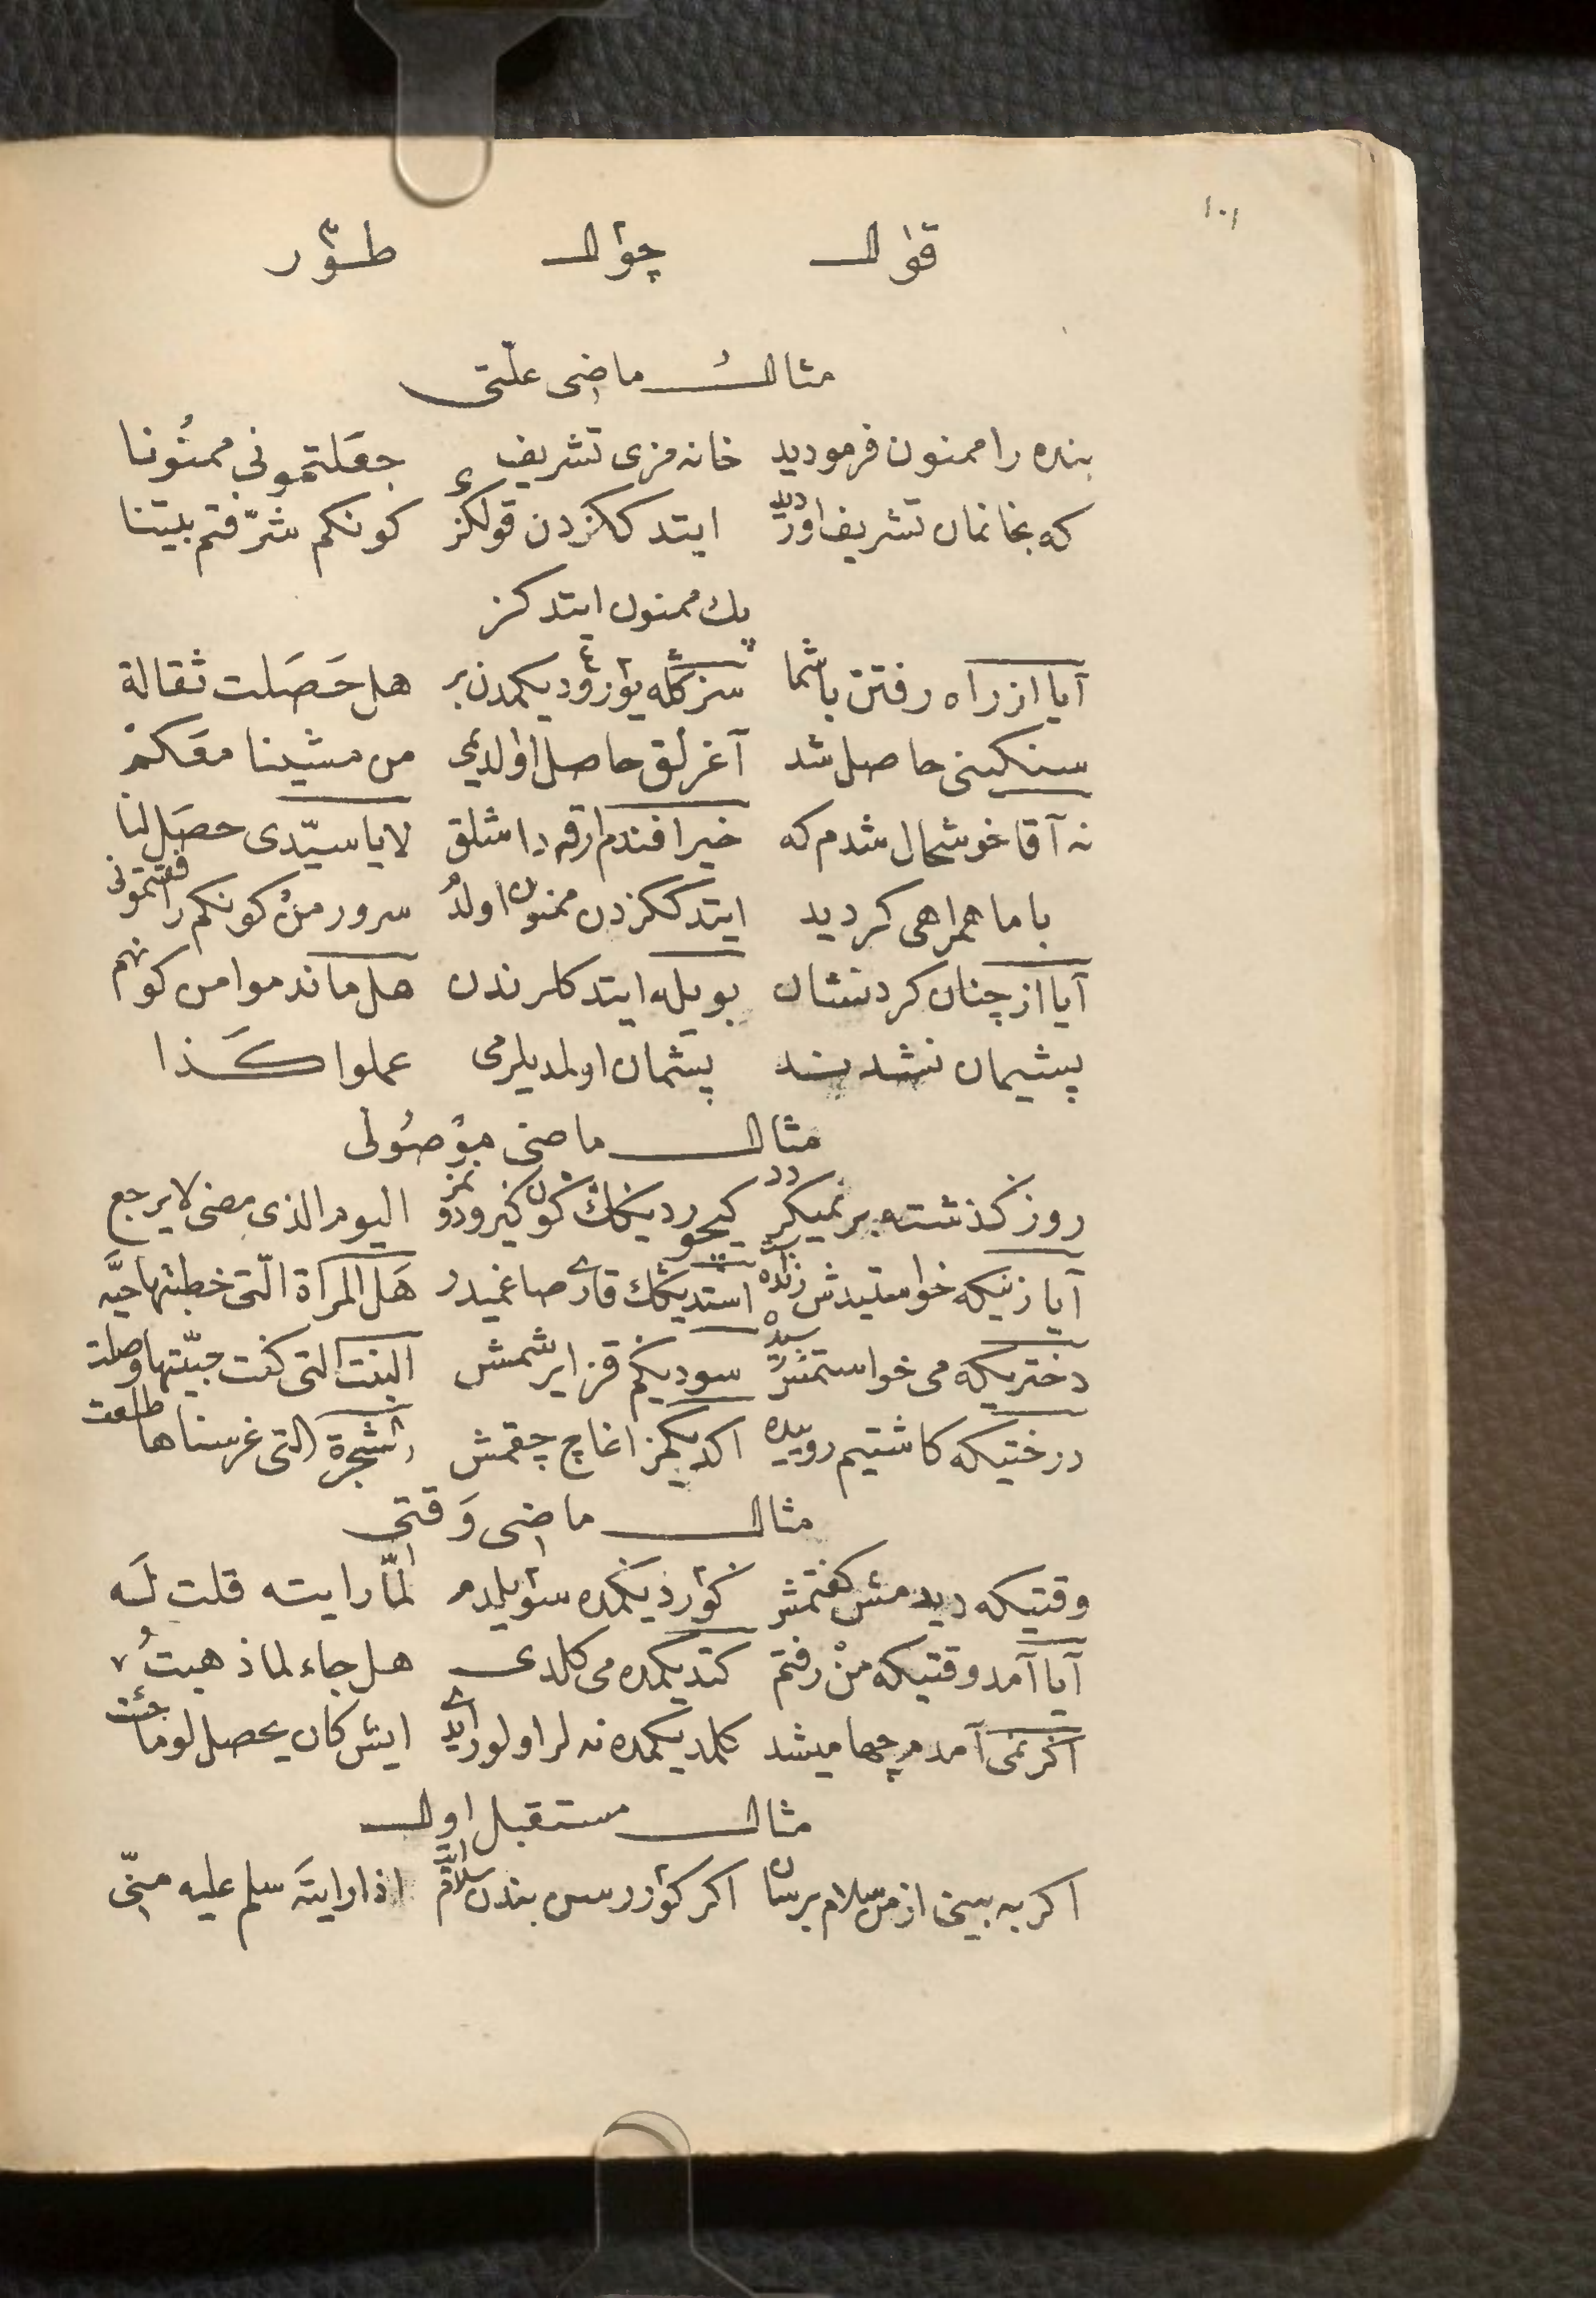 ١٠١
قوٰال چوٰال طوٰر
مثال ماضی علّتی
بنده را ممنون فرمودید خانه مزی تشریف جعَلتمونی ممنُونا
که بخانمان تشریف اوردید ایتدککزدن قولکزی کونکم شرّفتم بیتنا
پك ممنون ایتدکز
آیا از راه رفتن باشما سزکله یوٰرودیکمدن بر هل حَصَلت ثقالة
سنکینی حاصل شد آغرلق حاصل اولدیمی من مشینا معَکمْ
نه آقا خوشحال شدم که خیر افندم ارقه داشلق لا یا سیّدی حصَل لنا
با ما همراهی کردید ایتدککزدن ممنون اولدُ سرور منْ کونکم رافقتمونی
آیا از چنان کردنشان بویله ایتدکلرندن هل ما ندموا من کونهم
پشیمان نشدند پشمان اولمدیلرمی عملوا کَذا
مثال ماضی موْصُولی
روز کذشته برنمیکردد کیچوردیکمك کون کیرو دونمز الیوم الذی مضی لا یرجع
آیا زنیکه خواستیدش زنده است استدیکك قاری صاغمیدر هَل المرأة الّتی خطبتها حیَّه
دختریکه می خواستمش رسیده سودیکم قز ایرشمش البنت التی کنت حبّیتها وصلت
درختیکه کاشتیم روییده اکدیکمز اغاچ چقمش الشجرة التی غرسناها طلعت
مثال ماضی وَقتی
وقتیکه دیدمش کفتمش کوٰردیکمده سوٰیلدم لمّا رایته قلت لَه
آیا آمد وقتیکه منْ رفتم کتدیکمده می کلدی هل جاء لما ذهبتُ ٧
اکر نمی آمدم چها میشد کلمدیکمده نه لر اولورایدی ایش کان یحصل لو ما جئت
مثال مستقبل اول
اکر به بینی از من سلام برسان اکر کوٰررسن بندن سلام ایت اذا رایتَه سلم علیه منّی